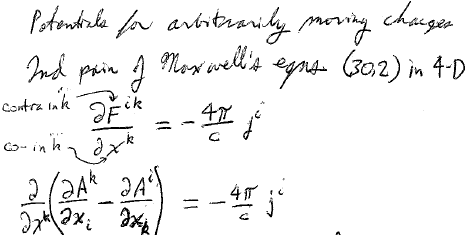 Potentials for arbitrarily moving charges
2nd pair of Maxwell's eqns. (30,2) in 4-D
contra in k ∂F^{ik}/∂x^k = -4π/c j^i
co- in k
∂/∂x^k (∂A^k/∂x_i - ∂A^i/∂x_k) = -4π/c j^i